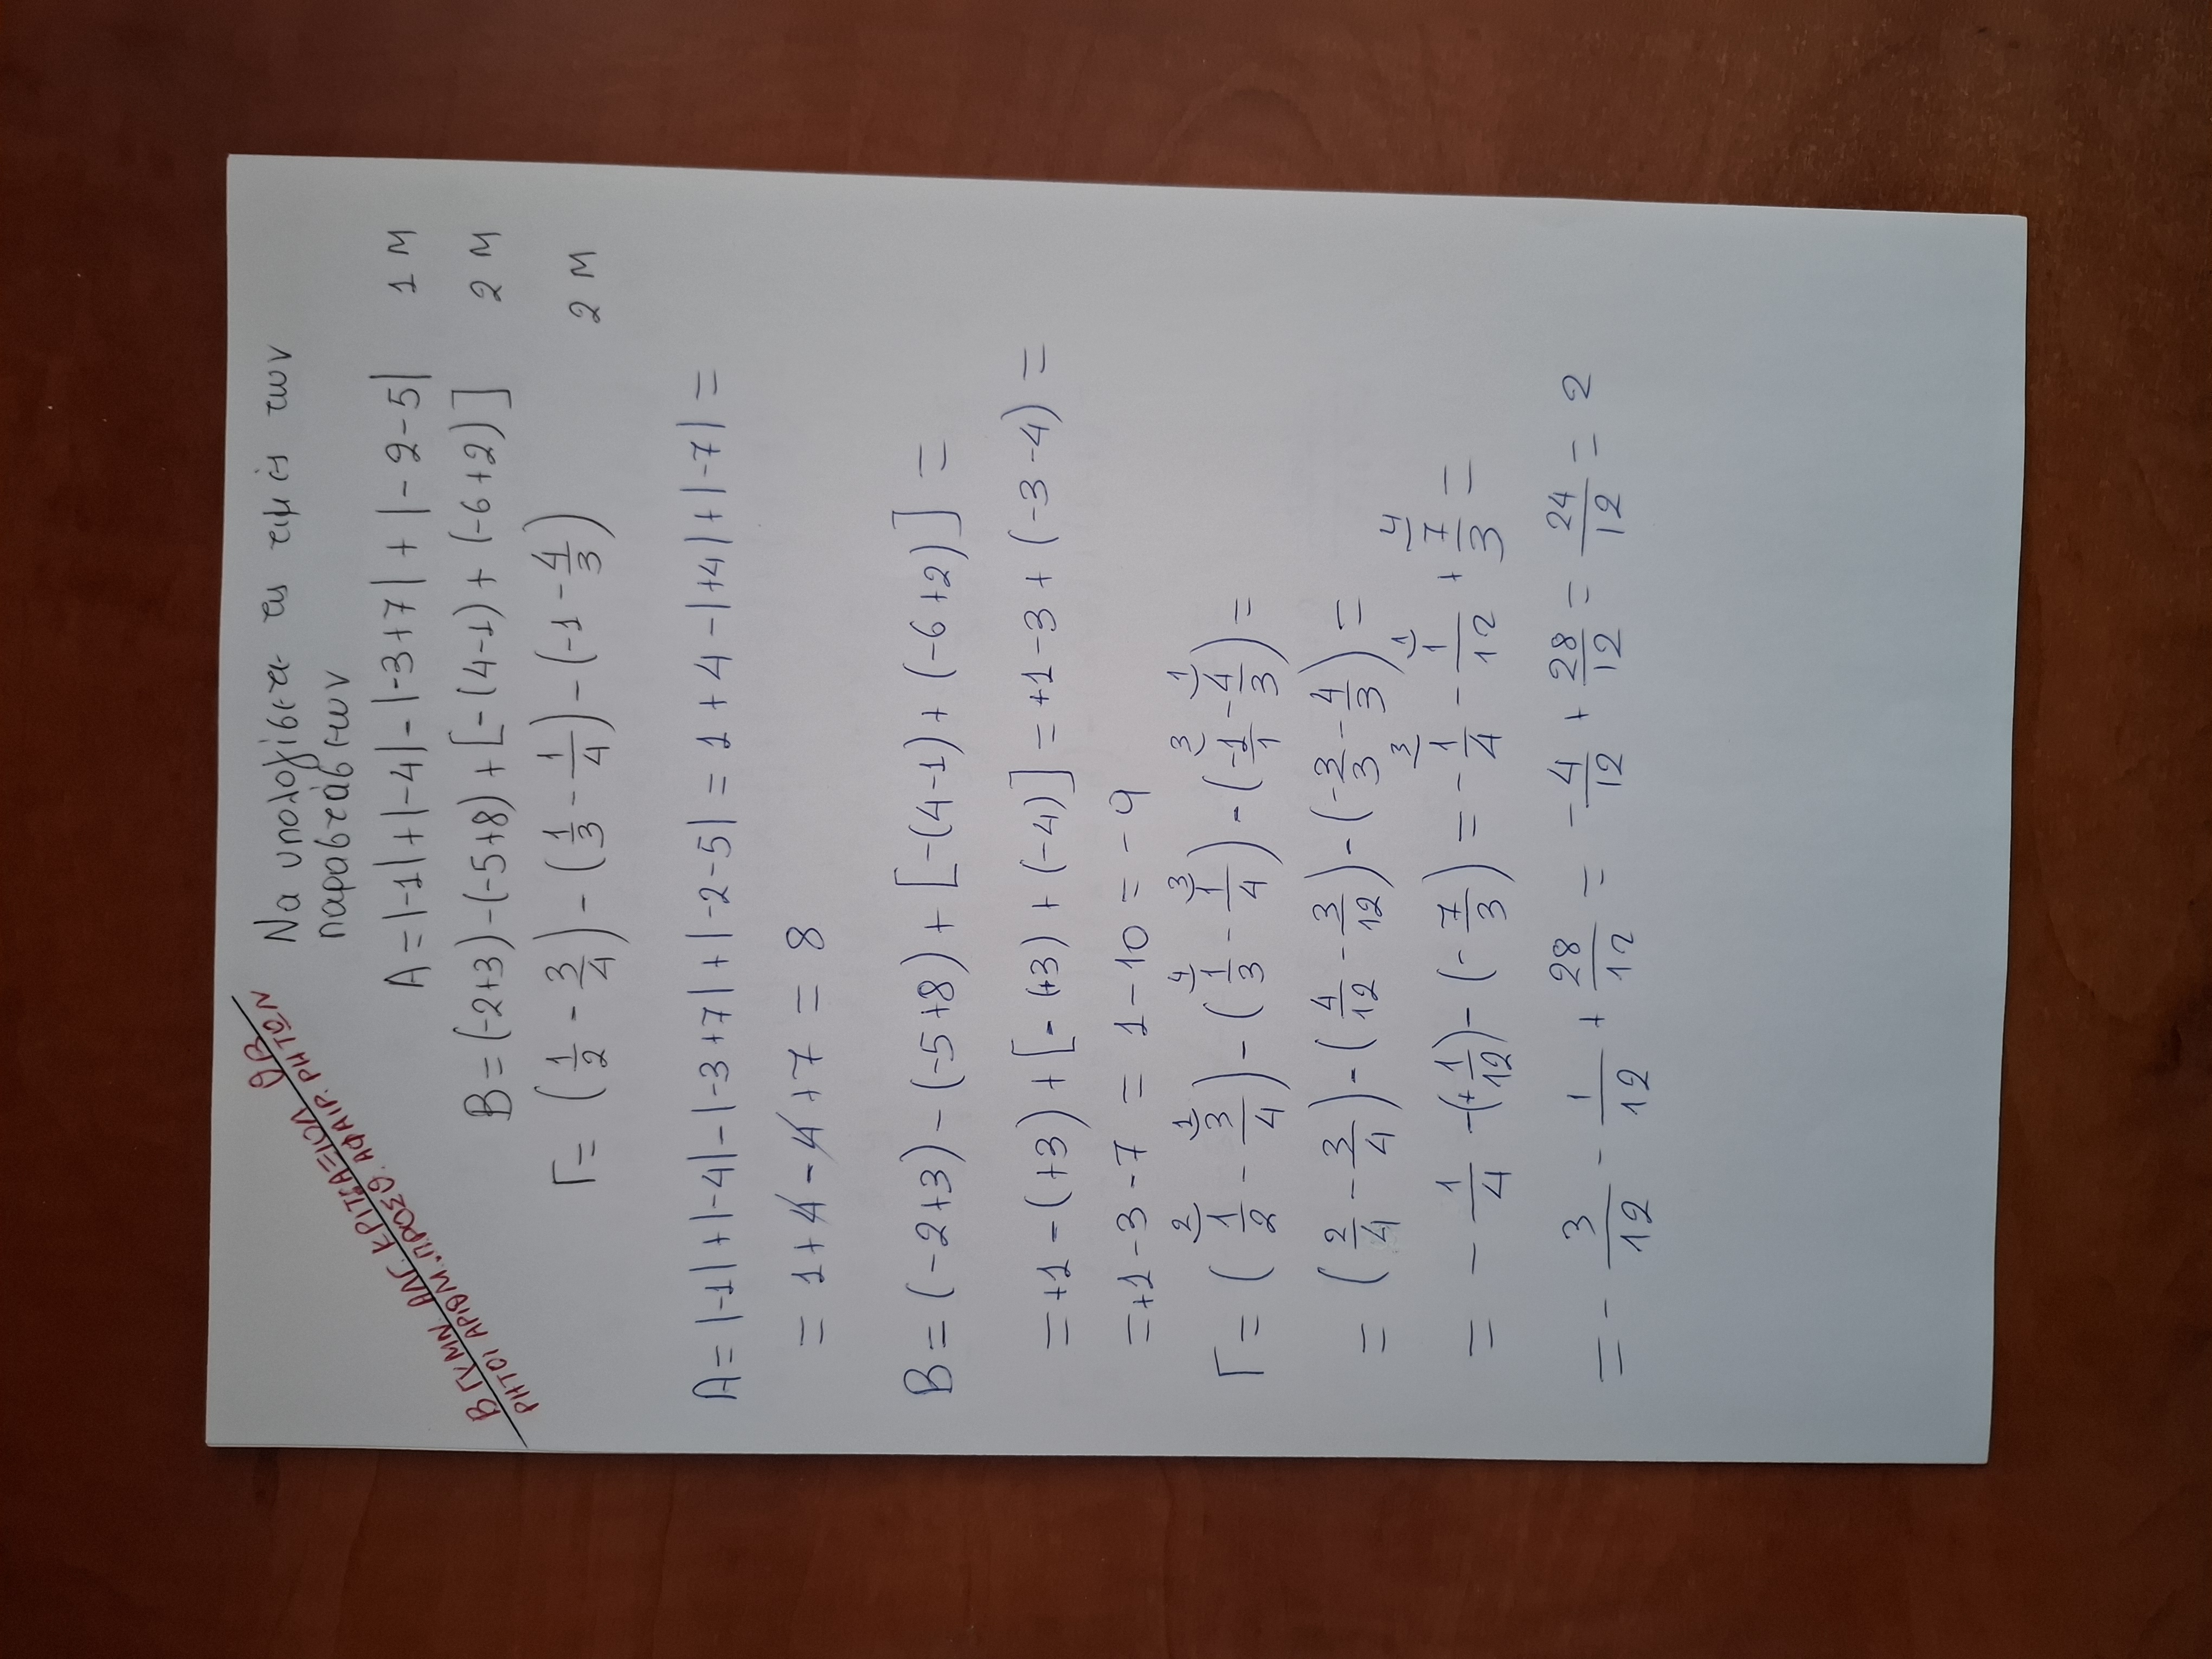 Β ΓΥΜΝ. ΑΛΓ. ΚΡΙΤ. ΑΞΙΟΛ
ΡΗΤΟΙ ΑΡΙΘΜ. ΠΡΟΣΘ. ΑΦΑΙΡ. ΡΗΤΩΝ
Να υπολογίσετε τις τιμές των
παραστάσεων
Α = |-1| + |-4| - |-3+7| + |-2-5| 1 Μ
Β = (-2+3) - (-5+8) + [-(4-1) + (-6+2)] 2 Μ
Γ = (1/2 - 3/4) - (1/3 - 1/4) - (-1 - 4/3) 2 Μ
Α = |-1| + |-4| - |-3+7| + |-2-5| = 1 + 4 - |+4| + |-7| =
= 1 + 4 - 4 + 7 = 8
Β = (-2+3) - (-5+8) + [-(4-1) + (-6+2)] =
= +1 - (+3) + [-(+3) + (-4)] = +1 - 3 + (-3-4) =
= +1 - 3 - 7 = 1 - 10 = -9
2) 1) 4) 3) 3) 1)
Γ = (1/2 - 3/4) - (1/3 - 1/4) - (-1/1 - 4/3) =
= (2/4 - 3/4) - (4/12 - 3/12) - (-3/3 - 4/3) =
3) 1) 4)
= -1/4 - (+1/12) - (-7/3) = -1/4 - 1/12 + 7/3 =
= -3/12 - 1/12 + 28/12 = -4/12 + 28/12 = 24/12 = 2